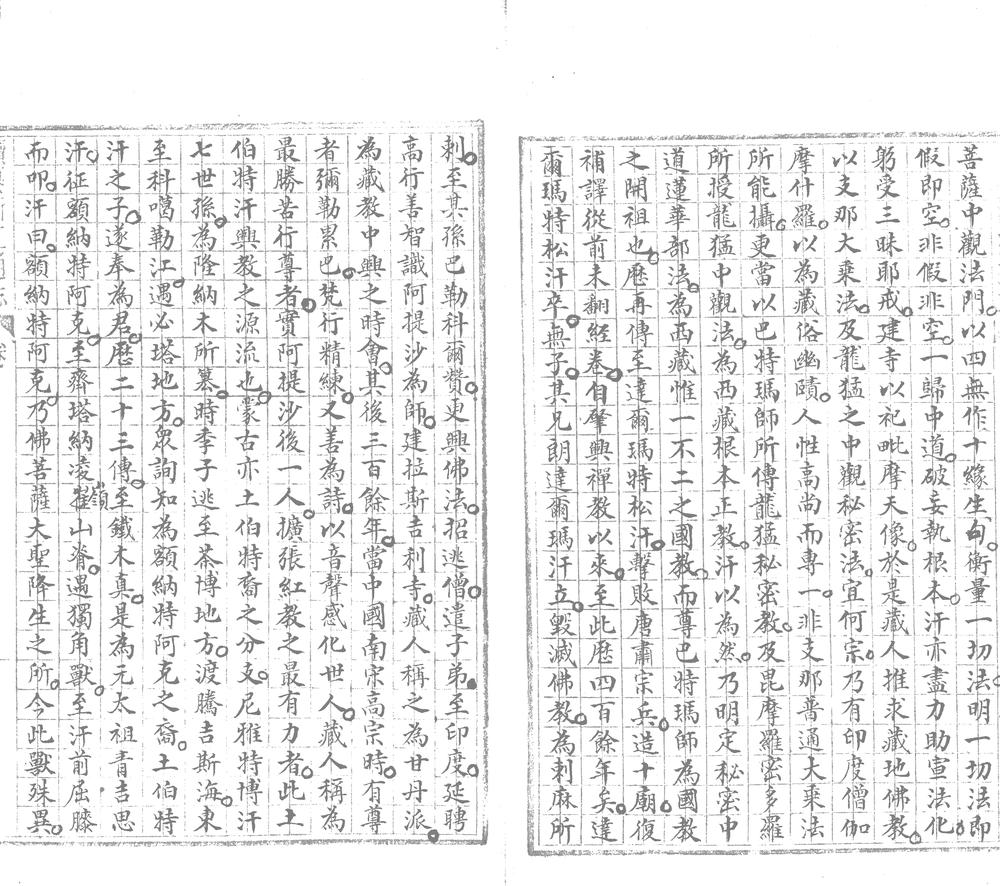 菩薩中觀法門以四無作十緣生句衡量一切法明一切法即
假即空非假非空一歸中道破妄執根本汗亦盡力助宣法化
躬受三昧耶戒建寺以祀毗摩天像於是藏人推求藏地佛教
以支那大乘法及龍猛之中觀秘密法宜何宗乃有印度僧伽
摩什羅以為藏俗幽賾人性高尚而專一非支那普通大乘法
所能攝更當以巴特瑪師所傳龍猛秘密教及毘摩羅密多羅
所授龍猛中觀法為西藏根本正教汗以為然乃明定秘密中
道蓮華部法為西藏惟一不二之國教而尊巴特瑪師為國教
之開祖也歷再傳至達爾瑪特松汗擊敗唐肅宗兵造十廟復
補譯從前未翻經卷自肇興禪教以來至此歷四百餘年矣達
爾瑪特松汗卒無子其兄朗達爾瑪汗立毀滅佛教為刺麻所
刺至其孫巴勒科爾贊更興佛法招逃僧遣子弟至印度延聘
高行善智識阿提沙為師建拉斯吉利寺藏人稱之為甘丹派
為藏教中興之時會其後三百餘年當中國南宋高宗時有尊
者彌勒累巴梵行精練又善為詩以音聲感化世人藏人稱為
最勝苦行尊者實阿提沙後一人擴張紅教之最有力者此土
伯特汗興教之源流也蒙古亦土伯特裔之分支尼雅特博汗
七世孫為隆納木所篡時季子逃至茶博地方渡騰吉斯海東
至科噶勒江遇必塔地方眾詢知為額納特阿克之裔土伯特
汗之子遂奉為君歷二十三傳至鐵木真是為元太祖青吉思
汗征額納特阿克至齊塔納凌嶺山脊遇獨角獸至汗前屈膝
而叩汗曰額納特阿克乃佛菩薩大聖降生之所今此獸殊異